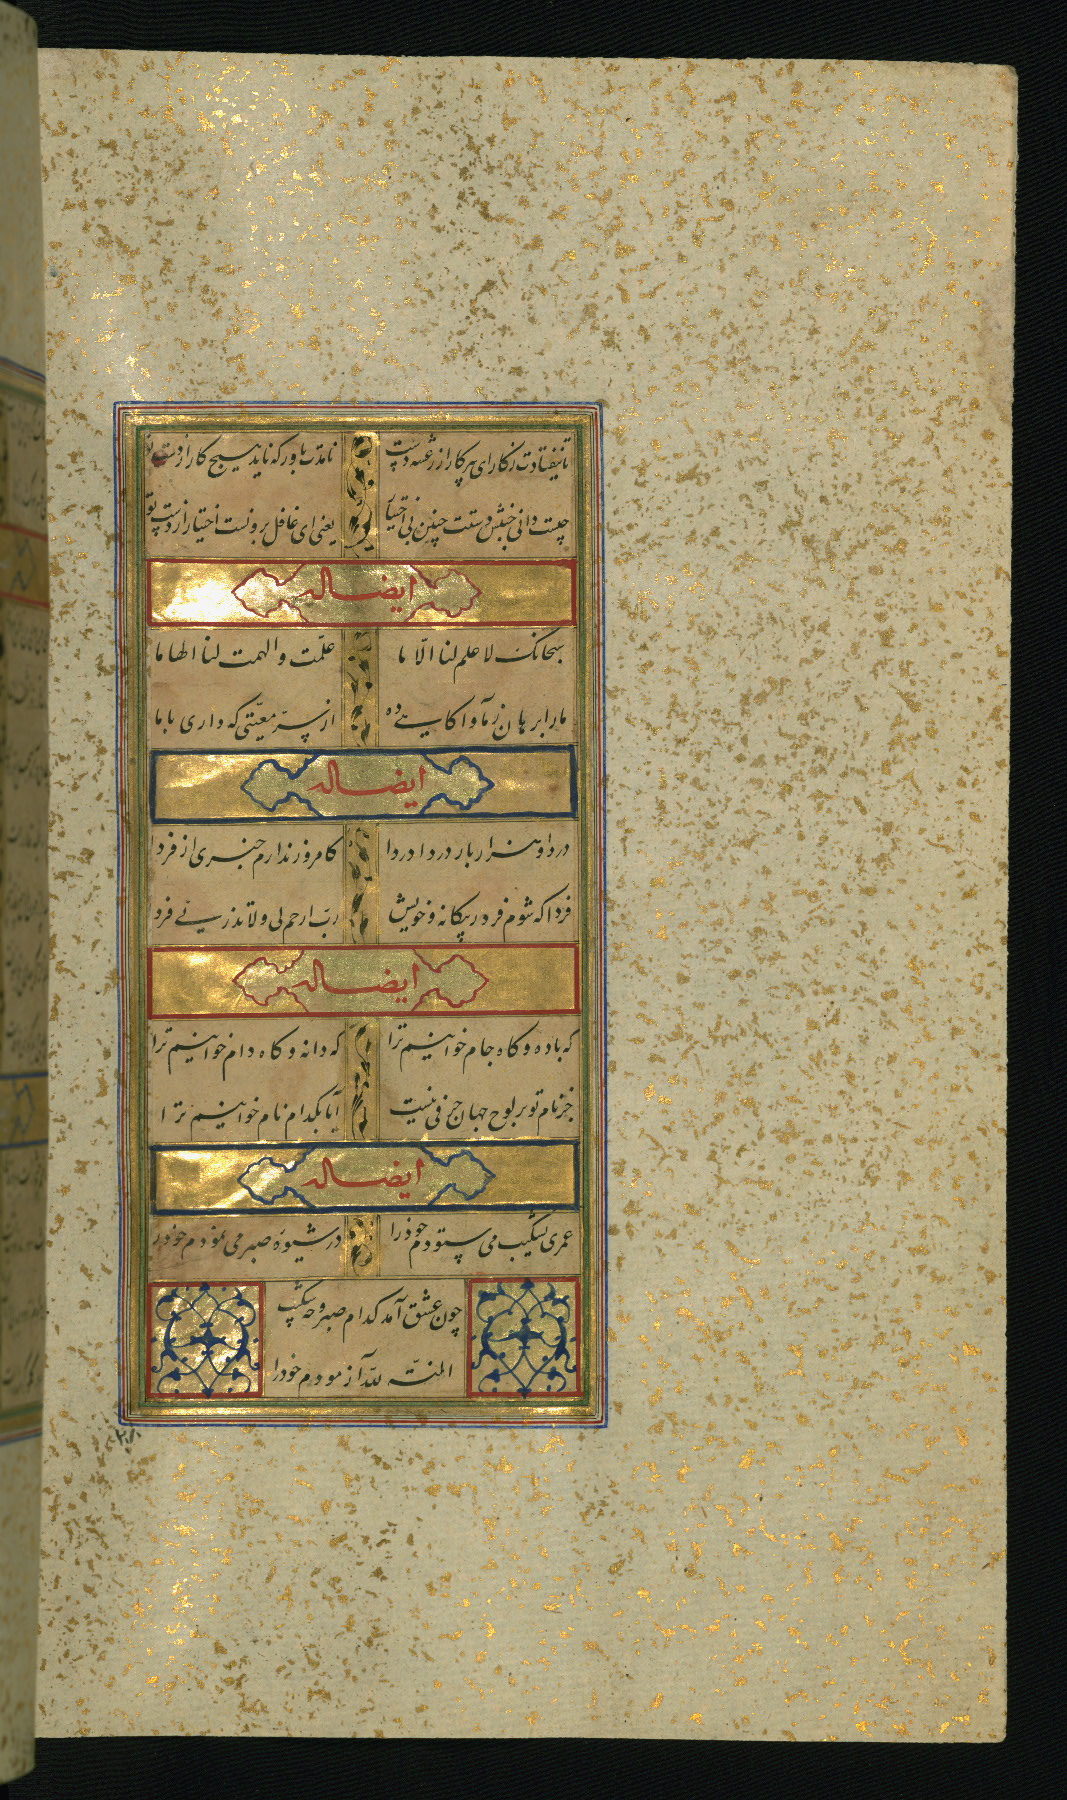 تا نیفتادت ز کار ای پیر کار از رعشه دست نامدت باور که ناید هیچ کار از دست تو
چیست دانی جنبش دستت چنین بی اختیار یعنی ای غافل برونست اختیار از دست تو
ایضا له
سبحانک لا علم لنا الّا ما علّمت و الهمت لنا الهاما
ما را برهان ز ما و آگاهی ده از سرّ معیّتی که داری با ما
ایضا له
دردا و هزار بار دردا دردا کامروز ندارم خبری از فردا
فردا که شوم فرد ز بیگانه و خویش ربّ ارحم لی ولا تذرنی فردا
ایضا له
که باده و گاه جام خوانیم ترا که دانه و گاه دام خوانیم ترا
جز نام تو بر لوح جهان حرفی نیست آیا بکدام نام خوانیم ترا
ایضا له
عمری بشکیب می ستودم خود را در شیوه صبر می نمودم خود را
چون عشق آمد کدام صبر و چه شکیب
المنّة لله آزمودم خود را